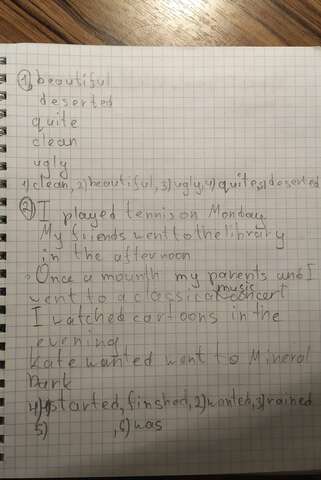 1) beautiful
deserted
quite
clean
ugly
1) clean, 2) beautiful, 3) ugly, 4) quite, 5) deserted
2) I played tennis on Monday
My friends went to the library
in the afternoon
Once a mounth my parents and I
went to a classical music concert
I watched cartoons in the
evening
Kate wanted went to Mineral
Park
4) 1) started, finshed, 2) wanted, 3) rained
5) , 6) was